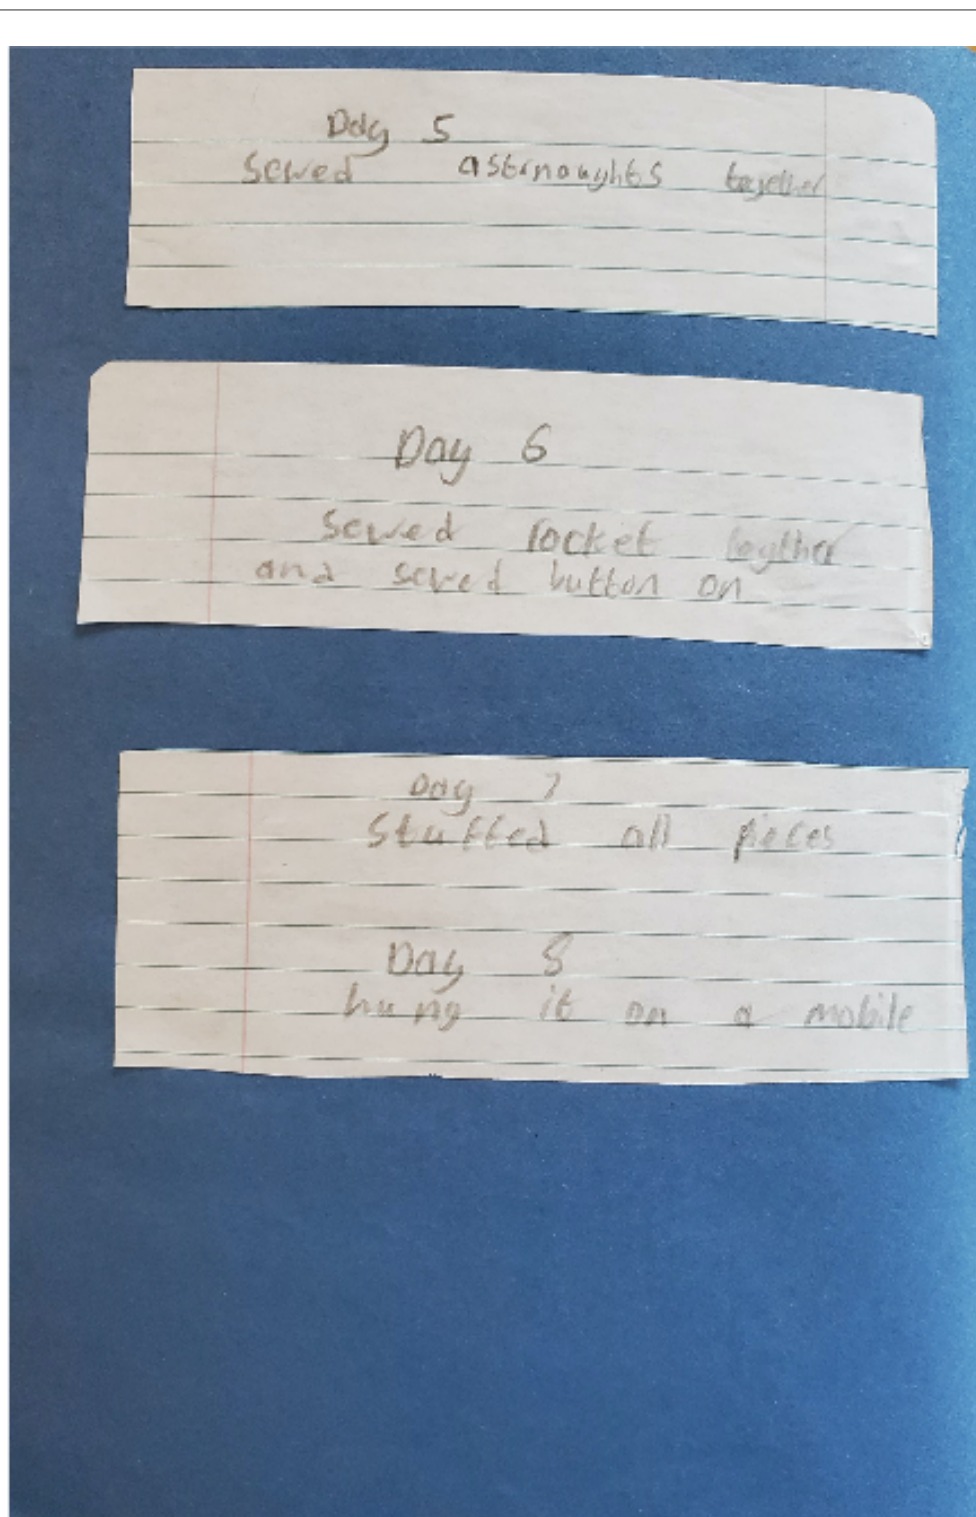 Day 5
Sewed astrnoughts together
Day 6
Sewed rocket togther
and sewed button on
Day 7
Stuffed all pieces
Day 8
hung it on a mobile